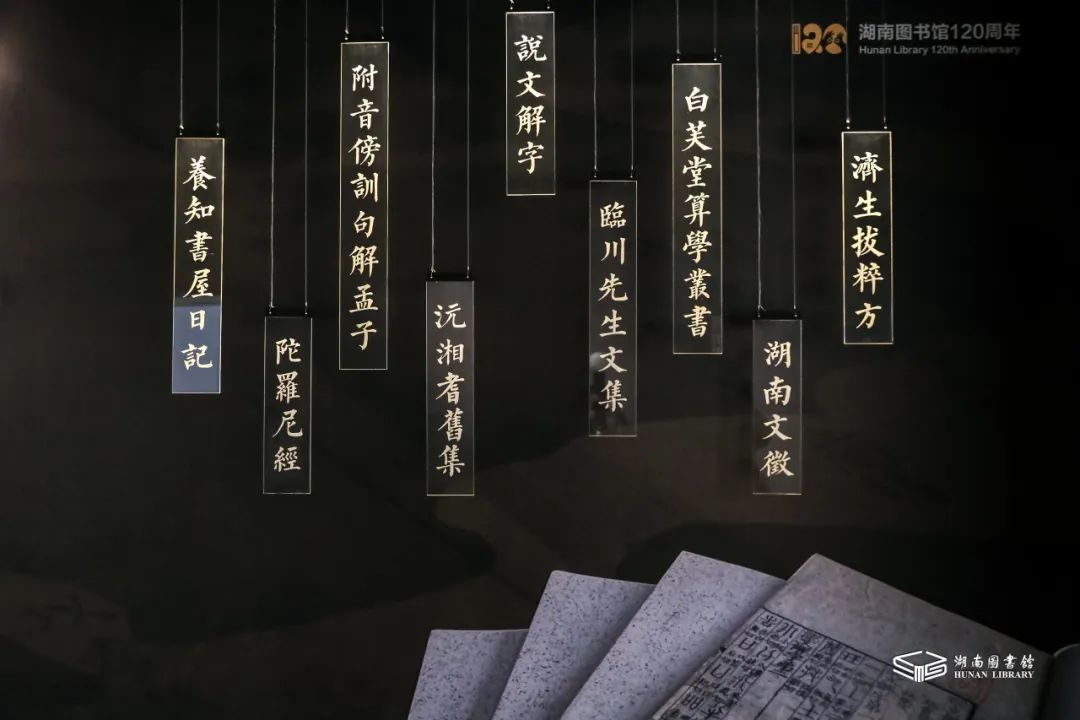 養知書屋日記
陀羅尼經
附音傍訓句解孟子
沅湘耆舊集
說文解字
臨川先生文集
白芙堂算學叢書
湖南文徵
濟生拔粹方
120
湖南图书馆120周年
Hunan Library 120th Anniversary
湖南圖書館
HUNAN LIBRARY